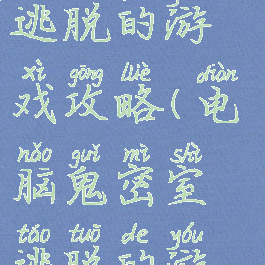 逃脱的游
xì gōng lüè diàn
戏攻略(电
nǎo guǐ mì shì
脑鬼密室
táo tuō de yóu
逃脱的游